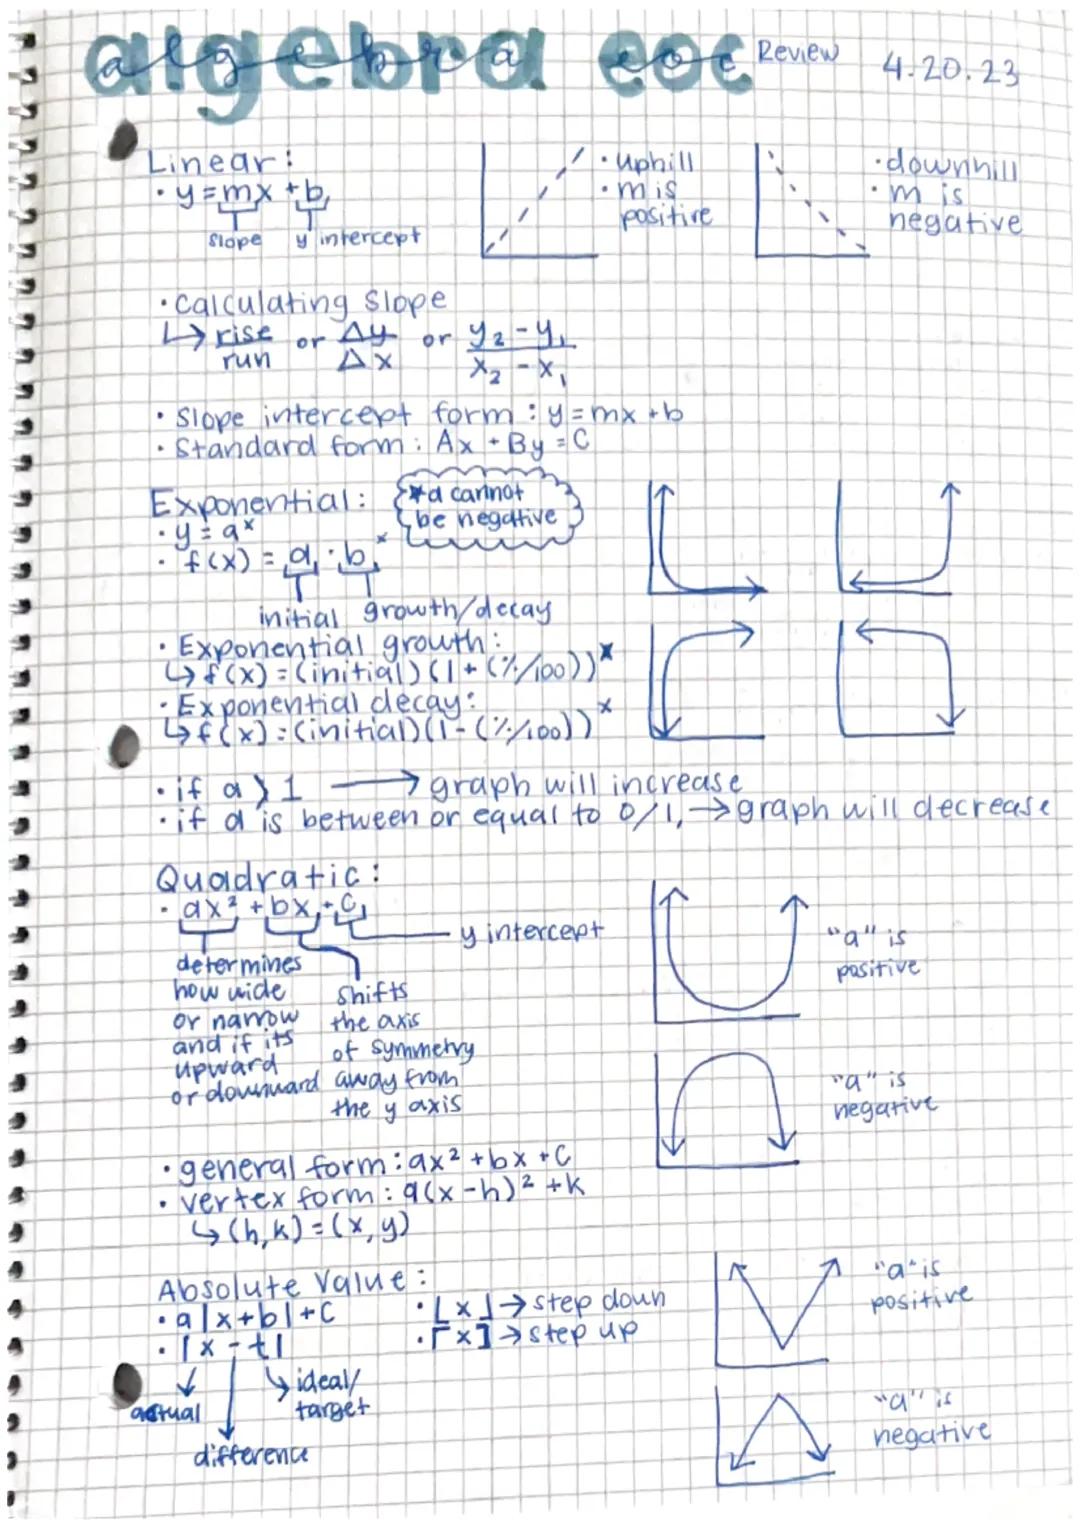 algebra eoc Review 4.20.23
Linear:
• y = mx + b
slope y intercept
• uphill
• m is
positive
• downhill
• m is
negative
• Calculating Slope
↳ rise/run or Δy/Δx or y₂ - y₁/x₂ - x₁
• Slope intercept form : y = mx + b
• Standard form : Ax + By = C
Exponential:
*a cannot
be negative
• y = aˣ
• f(x) = a · bˣ
initial growth/decay
• Exponential growth:
↳ f(x) = (initial)(1 + (%/100))ˣ
• Exponential decay:
↳ f(x) = (initial)(1 - (%/100))ˣ
• if a > 1 → graph will increase
• if a is between or equal to 0/1, → graph will decrease
Quadratic:
• ax² + bx + c
y intercept
determines
how wide
or narrow
and if its
upward
or downward
shifts
the axis
of symmetry
away from
the y axis
"a" is
positive
"a" is
negative
• general form : ax² + bx + c
• vertex form : a(x - h)² + k
↳ (h, k) = (x, y)
Absolute Value :
• a|x + b| + c
• |x - t|
actual
difference
ideal/
target
• ⌊x⌋ → step down
• ⌈x] → step up
"a" is
positive
"a" is
negative